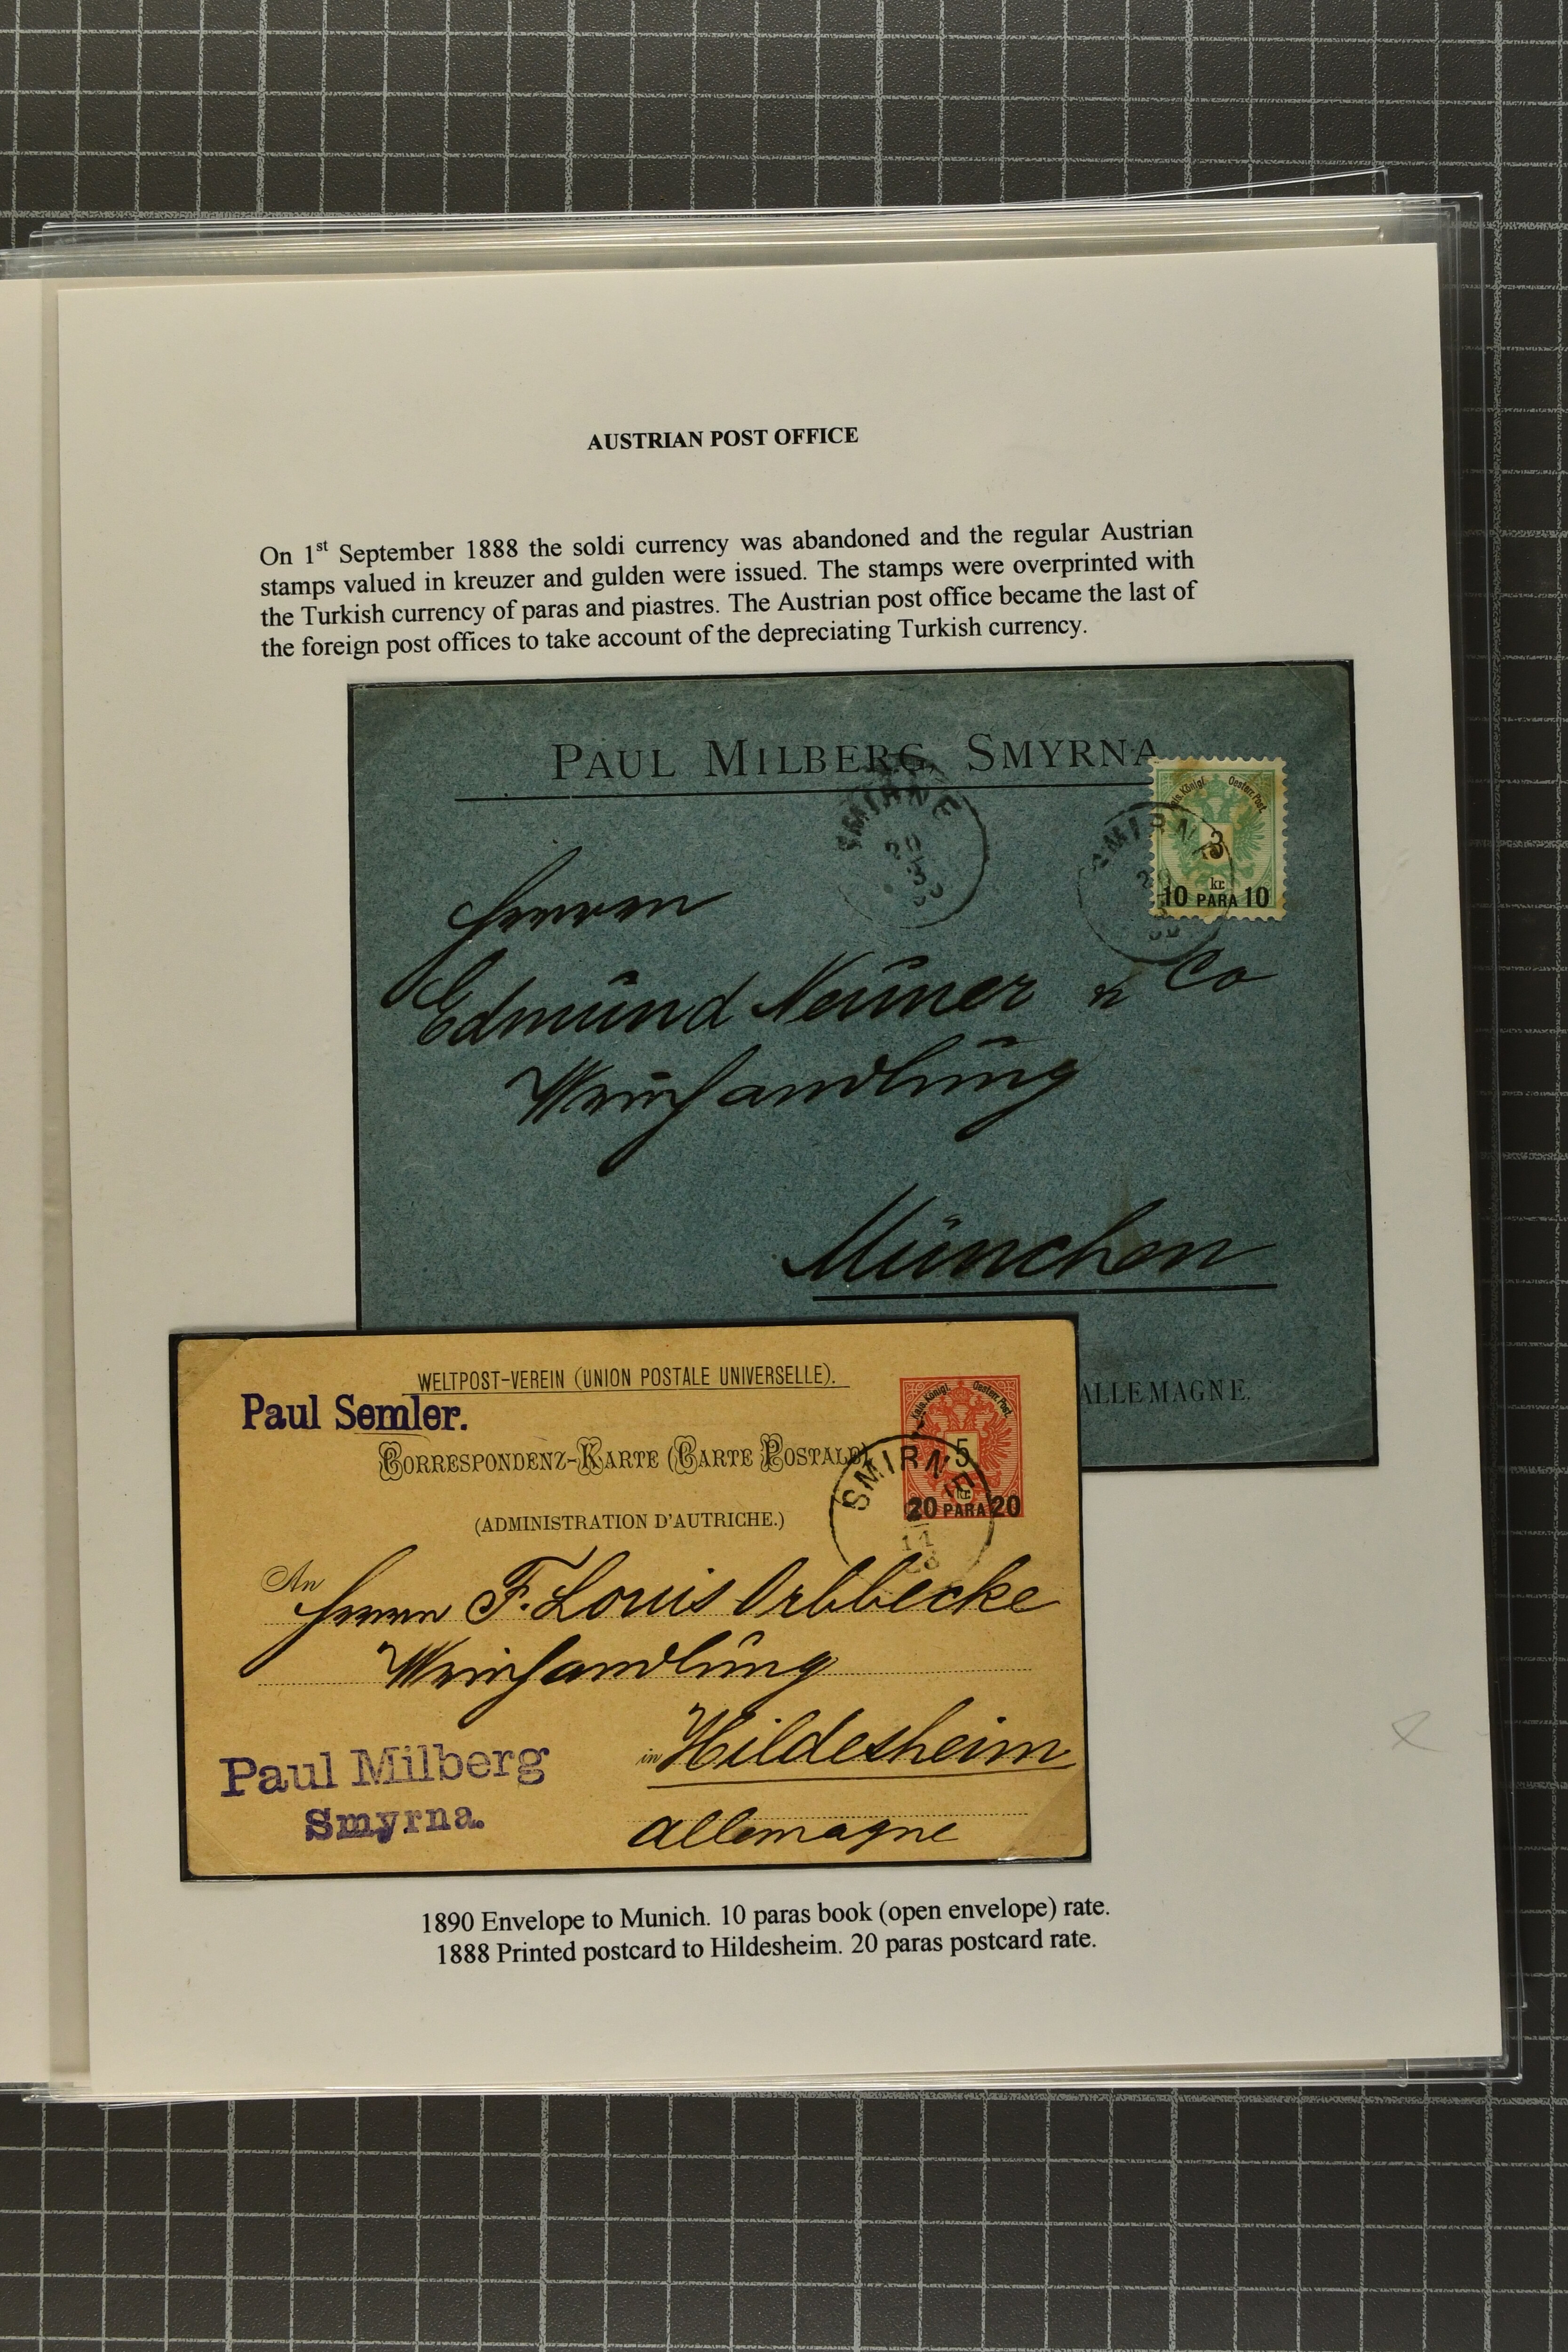 AUSTRIAN POST OFFICE
On 1st September 1888 the soldi currency was abandoned and the regular Austrian
stamps valued in kreuzer and gulden were issued. The stamps were overprinted with
the Turkish currency of paras and piastres. The Austrian post office became the last of
the foreign post offices to take account of the depreciating Turkish currency.
PAUL MILBERG, SMYRNA
SMIRNE
Kais. Königl. Oesterr. Post.
3
kr.
10 PARA 10
SMIRNE
Herren
Edmund Neuner & Co
Weinhandlung
München
ALLEMAGNE.
WELTPOST-VEREIN (UNION POSTALE UNIVERSELLE).
Paul Semler.
CORRESPONDENZ-KARTE (CARTE POSTALE)
(ADMINISTRATION D'AUTRICHE.)
Kais. Königl. Oesterr. Post.
5
kr.
20 PARA 20
SMIRNE
An
Herrn F. Louis Orbbecke
Weinhandlung
in Hildesheim
Allemagne
Paul Milberg
Smyrna.
1890 Envelope to Munich. 10 paras book (open envelope) rate.
1888 Printed postcard to Hildesheim. 20 paras postcard rate.